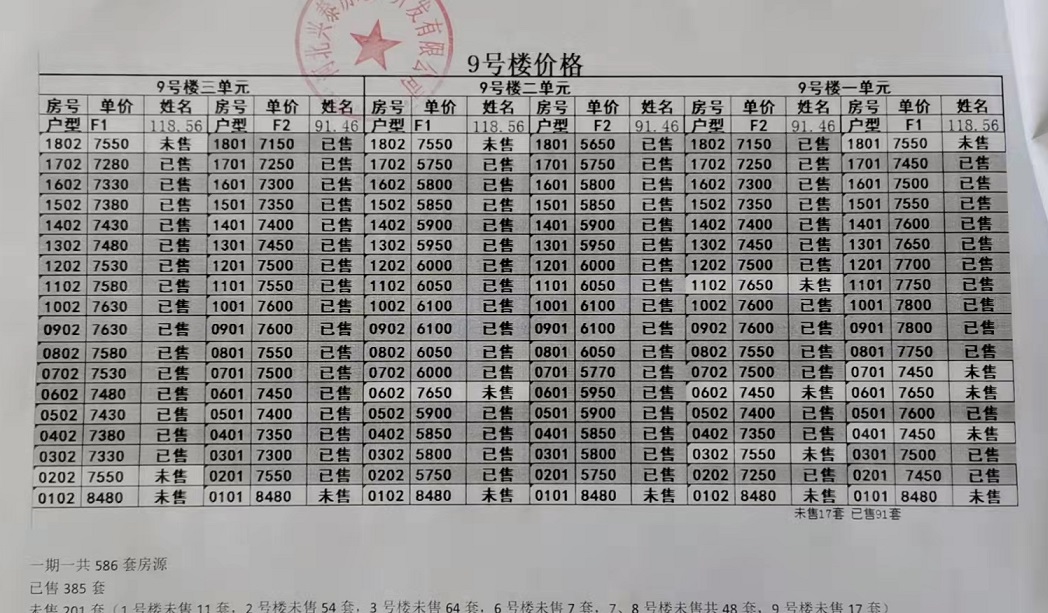 9号楼价格
9号楼三单元 9号楼二单元 9号楼一单元
房号 单价 姓名 房号 单价 姓名 房号 单价 姓名 房号 单价 姓名 房号 单价 姓名 房号 单价 姓名
户型 F1 118.56 户型 F2 91.46 户型 F1 118.56 户型 F2 91.46 户型 F2 91.46 户型 F1 118.56
1802 7550 未售 1801 7150 已售 1802 7550 未售 1801 5650 已售 1802 7150 已售 1801 7550 未售
1702 7280 已售 1701 7250 已售 1702 5750 已售 1701 5750 已售 1702 7250 已售 1701 7450 已售
1602 7330 已售 1601 7300 已售 1602 5800 已售 1601 5800 已售 1602 7300 已售 1601 7500 已售
1502 7380 已售 1501 7350 已售 1502 5850 已售 1501 5850 已售 1502 7350 已售 1501 7550 已售
1402 7430 已售 1401 7400 已售 1402 5900 已售 1401 5900 已售 1402 7400 已售 1401 7600 已售
1302 7480 已售 1301 7450 已售 1302 5950 已售 1301 5950 已售 1302 7450 已售 1301 7650 已售
1202 7530 已售 1201 7500 已售 1202 6000 已售 1201 6000 已售 1202 7500 已售 1201 7700 已售
1102 7580 已售 1101 7550 已售 1102 6050 已售 1101 6050 已售 1102 7650 未售 1101 7750 已售
1002 7630 已售 1001 7600 已售 1002 6100 已售 1001 6100 已售 1002 7600 已售 1001 7800 已售
0902 7630 已售 0901 7600 已售 0902 6100 已售 0901 6100 已售 0902 7600 已售 0901 7800 已售
0802 7580 已售 0801 7550 已售 0802 6050 已售 0801 6050 已售 0802 7550 已售 0801 7750 已售
0702 7530 已售 0701 7500 已售 0702 6000 已售 0701 5770 已售 0702 7500 已售 0701 7450 未售
0602 7480 已售 0601 7450 已售 0602 7650 未售 0601 5950 已售 0602 7450 未售 0601 7650 未售
0502 7430 已售 0501 7400 已售 0502 5900 已售 0501 5900 已售 0502 7400 已售 0501 7600 已售
0402 7380 已售 0401 7350 已售 0402 5850 已售 0401 5850 已售 0402 7350 已售 0401 7450 未售
0302 7330 已售 0301 7300 已售 0302 5800 已售 0301 5800 已售 0302 7550 未售 0301 7500 已售
0202 7550 未售 0201 7550 已售 0202 5750 已售 0201 5750 已售 0202 7250 已售 0201 7450 已售
0102 8480 未售 0101 8480 未售 0102 8480 未售 0101 8480 未售 0102 8480 未售 0101 8480 未售
未售17套 已售91套
一期一共 586 套房源
已售 385 套
未售 201 套（1 号楼未售 11 套，2 号楼未售 54 套，3 号楼未售 64 套，6 号楼未售 7 套，7、8 号楼未售共 48 套，9 号楼未售 17 套）